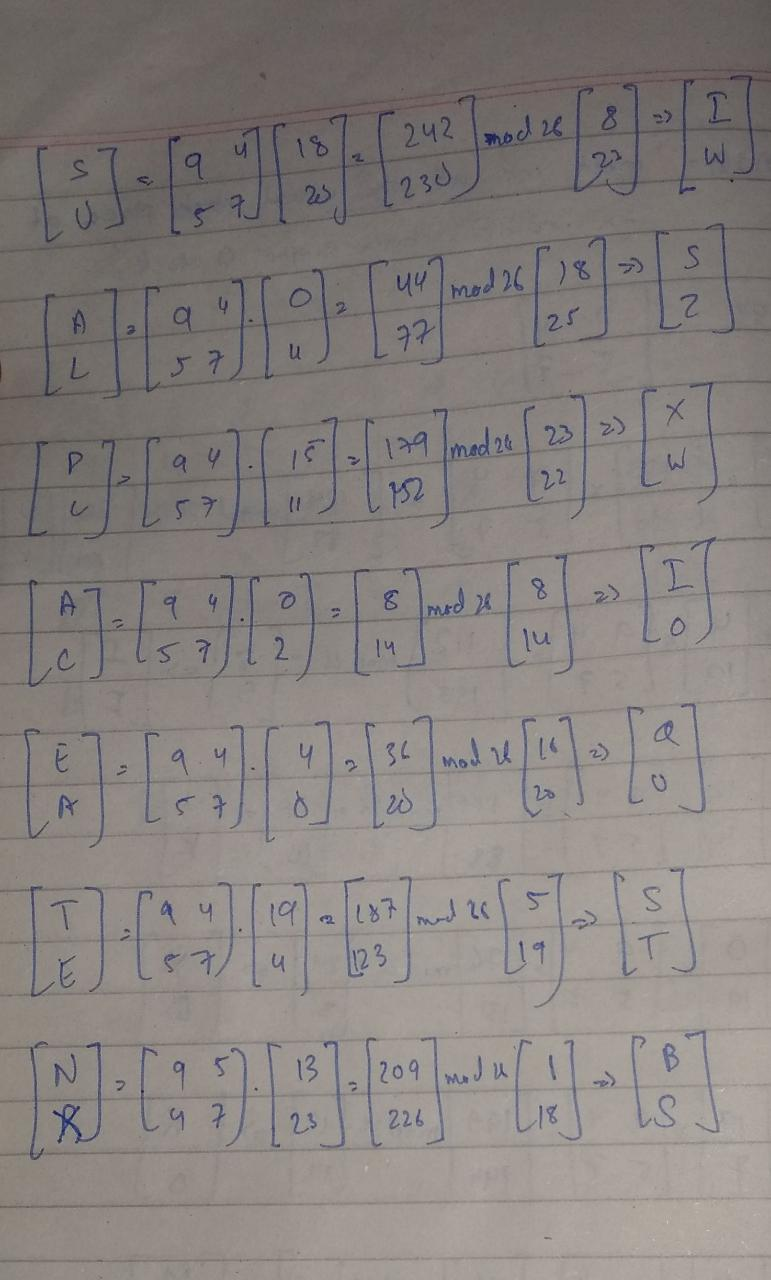 [S U] = [9 4 5 7] [18 20] = [242 230] mod 26 [8 22] => [I W]
[A L] = [9 4 5 7] . [0 11] = [44 77] mod 26 [18 25] => [S Z]
[P L] = [9 4 5 7] . [15 11] = [179 152] mod 26 [23 22] => [X W]
[A C] = [9 4 5 7] . [0 2] = [8 14] mod 26 [8 14] => [I O]
[E A] = [9 4 5 7] . [4 0] = [36 20] mod 26 [16 20] => [Q U]
[T E] = [9 4 5 7] . [19 4] = [187 123] mod 26 [5 19] => [S T]
[N X] = [9 5 4 7] . [13 23] = [209 226] mod 26 [1 18] => [B S]